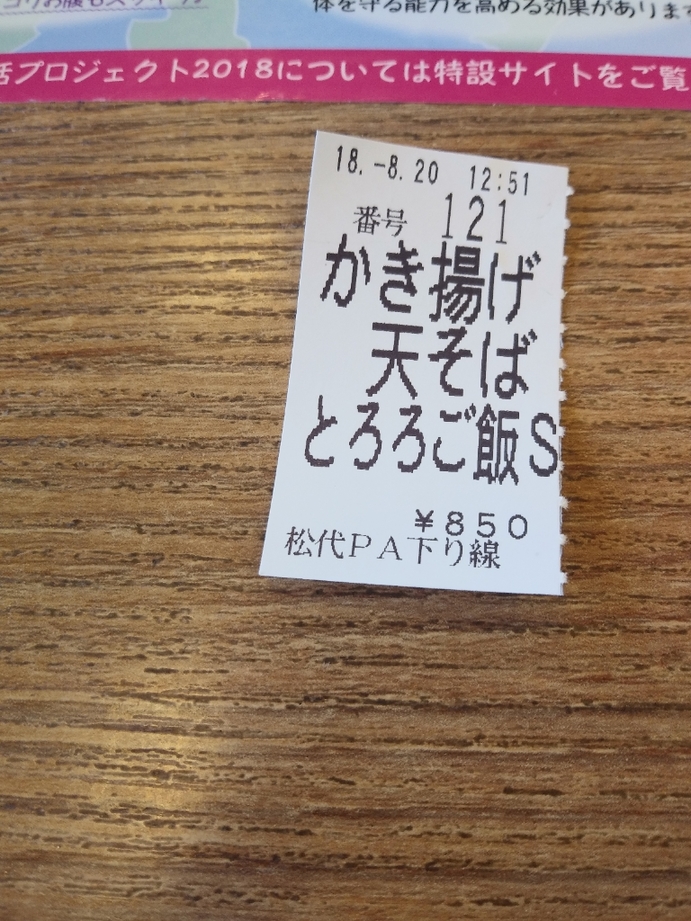 体を守る能力を高める効果があります
活プロジェクト2018については特設サイトをご覧
18.-8.20 12:51
番号 121
かき揚げ
天そば
とろろご飯S
¥850
松代PA下り線